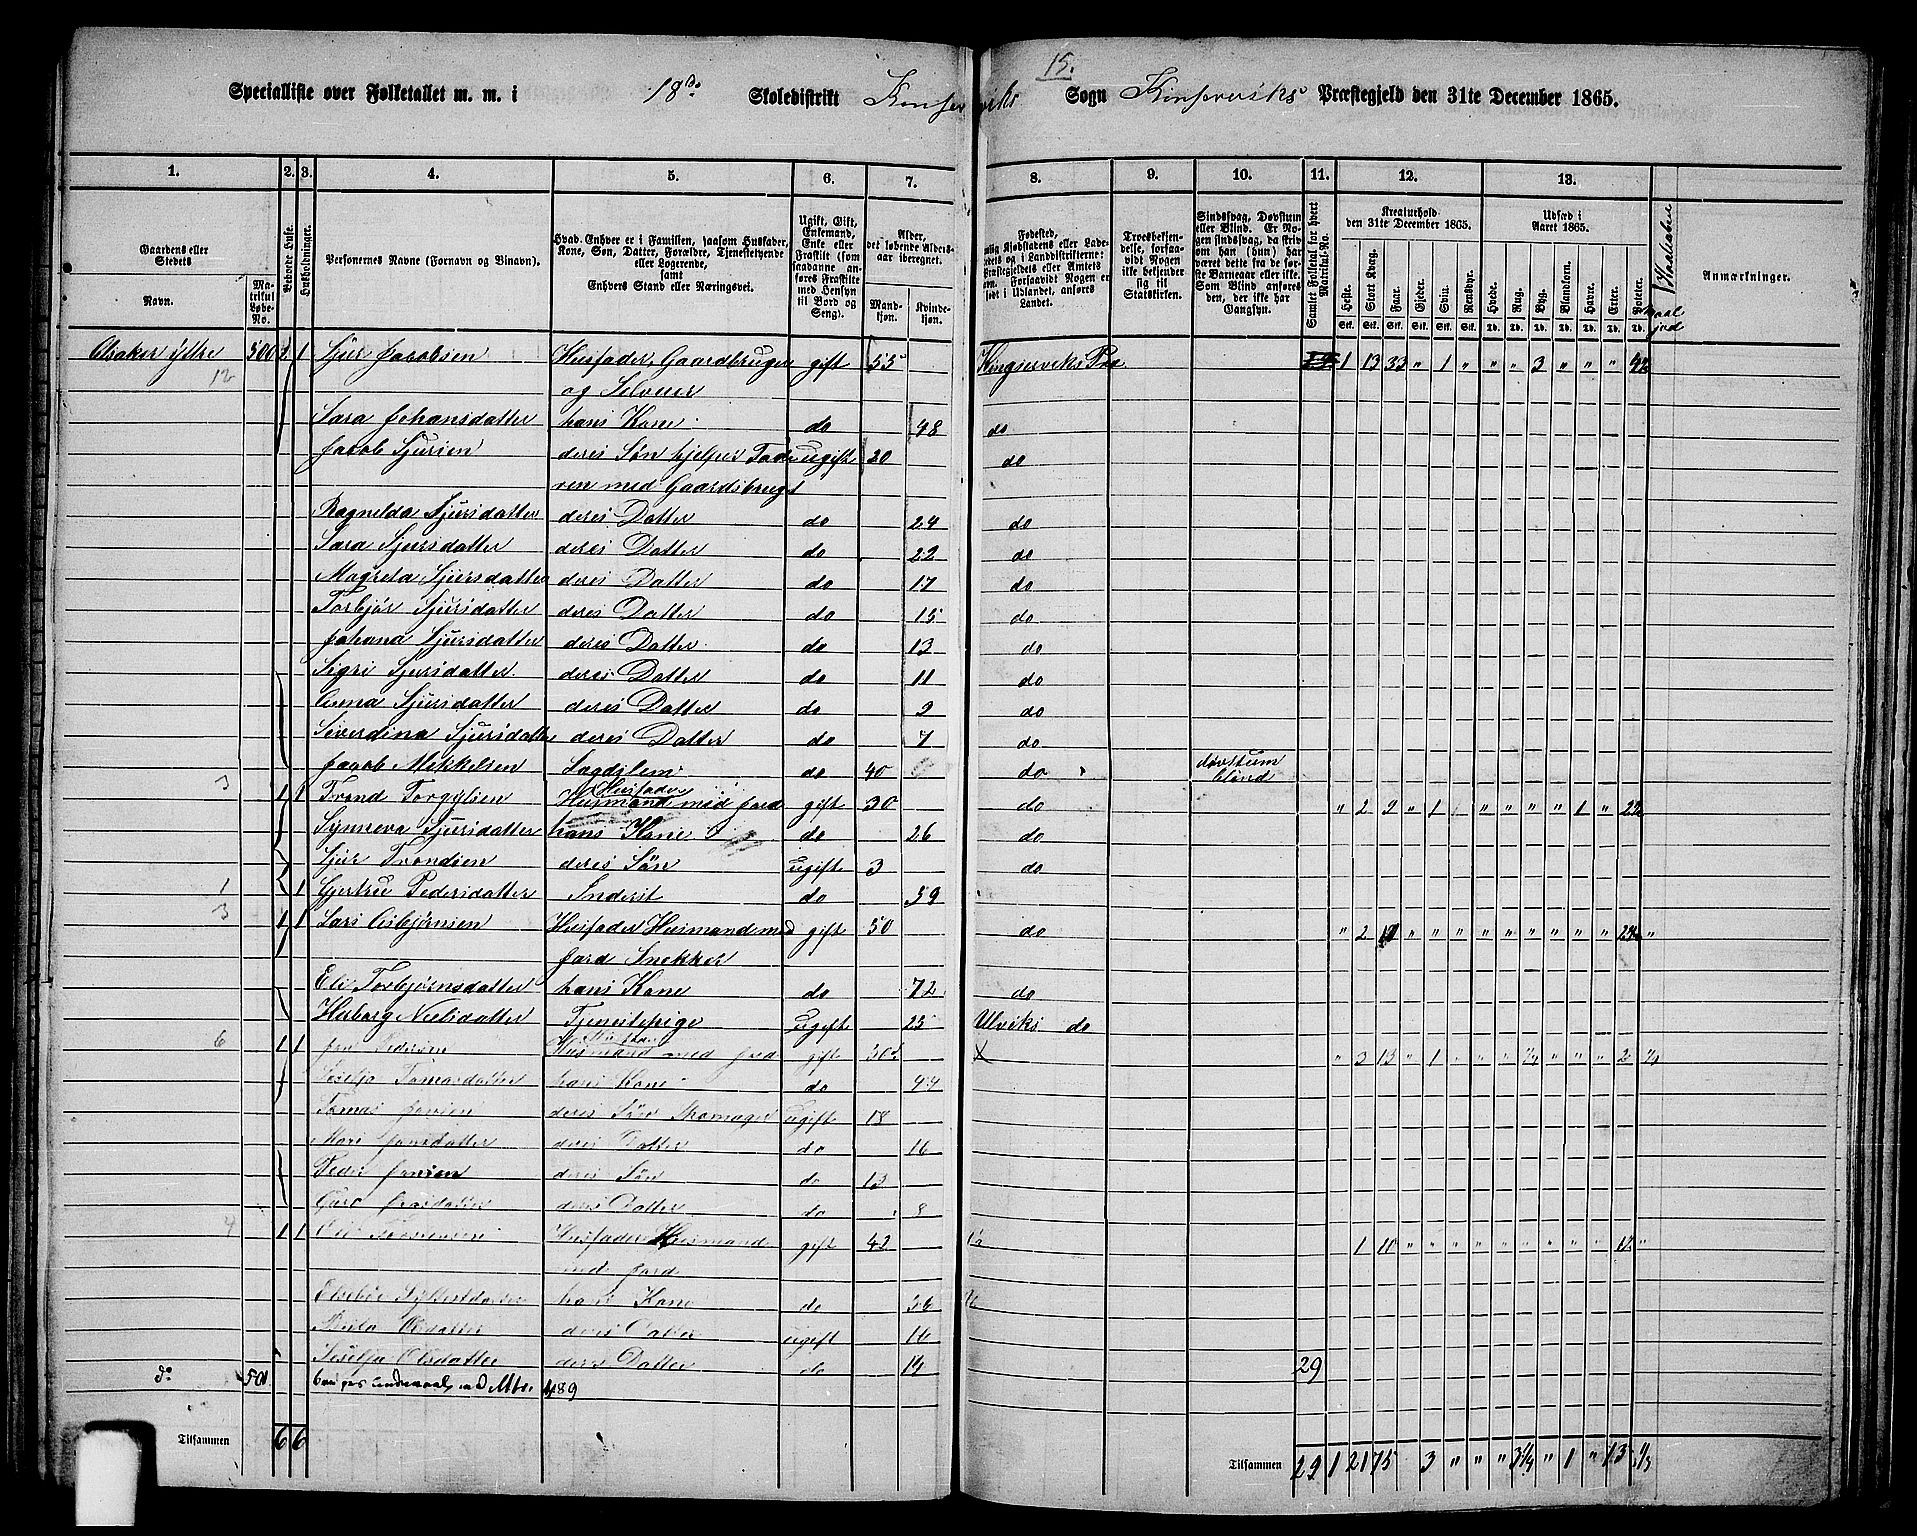 15.
Specialliste over Folketallet m. m. i 18de Skoledistrikt Kinserviks Sogn Kinserviks Præstegjeld den 31te December 1865.
1. 2. 3. 4. 5. 6. 7. 8. 9. 10. 11. 12. 13.
Gaardens eller Stedets Navn.
Matrikul Løbe-No.
Beboede Huse.
Husholdninger.
Personernes Navne (Fornavn og Binavn).
Hvad Enhver er i Familien, saasom Husfader, Kone, Søn, Datter, Forældre, Tjenestetyende eller Logerende, samt Enhvers Stand eller Næringsvei.
Ugift, Gift, Enkemand, Enke eller Fraskilt (som saadanne anføres Fraskilte med Hensyn til Bord og Seng).
Alder, det løbende Alders-aar iberegnet.
Mandkjøn. Kvindekjøn.
Fødested,
Troesbekjendelse, forsaavidt Nogen ikke bekjender sig til Statskirken.
Sindssvag, Døvstum eller Blind. Er Nogen sindssvag, da skrives, om han (hun) har været dette fra de første Barneaar eller ikke. Som Blind anføres den, der ikke har Gangsyn.
Samlet Folketal for hvert Matrikul-No.
Kreaturhold den 31te December 1865.
Udsæd i Aaret 1865.
Heste. Stort Kvæg. Faar. Gjeder. Sviin. Rensdyr. Hvede. Rug. Byg. Blandkorn. Havre. Erter. Poteter.
Anmærkninger.
Aisaker Yttre 500 2 1 Sjur Jacobsen Husfader, Gaardbruger gift 55 Kingserviks Præ 1 13 33 " 1 " " " 3 " " " 4½
12 og Selveier
Sara Johansdatter hans Kone do 48 do
Jacob Sjursen deres Søn hjelper Fade ugift 20 do
ren med Gaardsbruget
Ragnilda Sjursdatter deres Datter do 24 do
Sara Sjursdatter deres Datter do 22 do
Magreta Sjursdatter deres Datter do 17 do
Torbjør Sjursdatter deres Datter do 15 do
Johana Sjursdatter deres Datter do 13 do
Sigri Sjursdatter deres Datter do 11 do
Anna Sjursdatter deres Datter do 9 do
Siverdina Sjursdatter deres Datter do 7 do
Jacob Mikkelsen Lægdslem do 40 do døvstum blind
3 1 1 Trond Torgilsen Husfader Husmand med Jord gift 30 do " 2 9 " 1 " " " " " 1 " 2½
Synneva Sjursdatter hans Kone do 26 do
Sjur Trondsen deres Søn ugift 3 do
1 1 Gjertru Pedersdatter Inderst do 59
3 1 1 Lars Asbjørnsen Husfader Husmand med gift 50 do " 2 " " " " " " " " " "
Jord Snekker
Eli Torbjørnsdatter hans Kone do 72 do
Herborg Nielsdatter Tjenestepige ugift 25 Ulviks do
6 1 1 Jon Pedersen Husfader Husmand med Jord gift 50 " 3 13 " 1 " " " ¼ " " " 2 ⅓
Siselja Tomasdatter hans Kone do 44
Tomas Jonsen deres Søn Skomager ugift 18
Mari Jonsdatter deres Datter do 16
Peder Jonsen deres Søn do 13
Guro Jonsdatter deres Datter do 8
4 1 1 Ole Husfader Husmand gift 42 " 1 10 " " " " " " " " "
med Jord
hans Kone do 36
Olsdatter deres Datter ugift 16
Siselja Olsdatter deres Datter do 14 29
do 501 489
Tilsammen 6 6
Tilsammen 29 1 21 75 3 " " " 3¼ " 1 " 13 ⅓